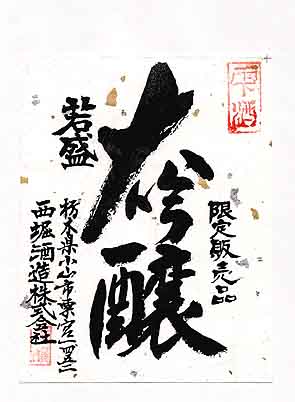 雫酒
限定販売品
大吟醸
若盛
栃木県小山市粟宮一四五二
西堀酒造株式会社